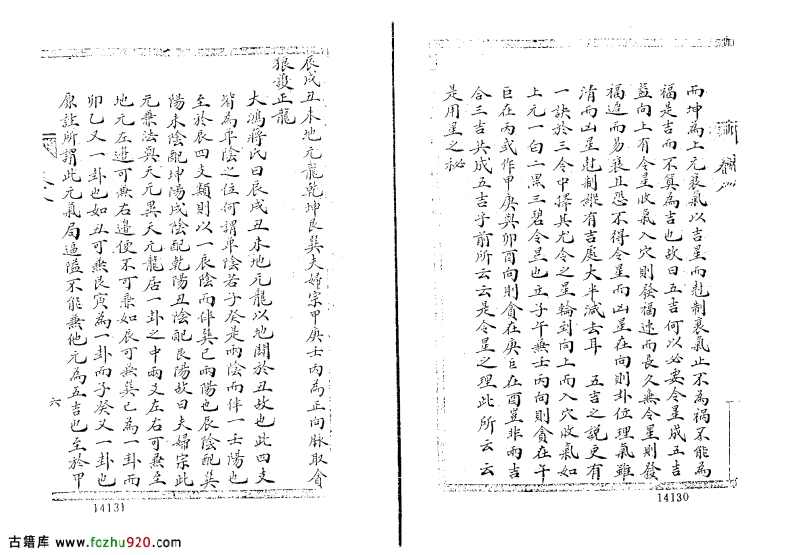 而坤為上元衰氣以吉星而尅制衰氣止不為禍不能為
福是吉而不算為吉也故曰五吉何以必要令星成五吉
蓋向上有令星收氣入穴則發福速而長久無令星則發
福遲而易衰且恐不得令星而凶星在向則卦位理氣雖
清而凶星尅制縱有吉處大半減去耳　五吉之說更有
一訣於三令中擇其尤令之星輪到向上而入穴收氣如
上元一白二黑三碧令星也立子午兼壬丙向則貪在午
巨在丙或作甲庚兼卯酉向則貪在庚巨在酉豈非兩吉
合三吉共成五吉乎前所云云是令星之理此所云云
是用星之秘
14130
辰戌丑未地元龍乾坤艮巽夫婦宗甲庚壬丙為正向脉取貪
狼護正龍
大鴻蔣氏曰辰戌丑未地元龍以地闢於丑故也此四支
皆為單陰之位何謂單陰若子癸是兩陰而伴一壬陽也
至於辰四支類則以一辰陰而伴巽巳兩陽也辰陰配巽
陽未陰配坤陽戌陰配乾陽丑陰配艮陽故曰夫婦宗此
元乘法與天元異天元龍居一卦之中兩又左右可兼至
地元左邉可兼右邉便不可乘如辰可兼巽巳為一卦而
卯乙又一卦也如丑可兼艮寅為一卦而子癸又一卦也
原註所謂此元氣局逼隘不能兼他元為五吉也至於甲
六
14131
古籍库 www.fozhu920.com